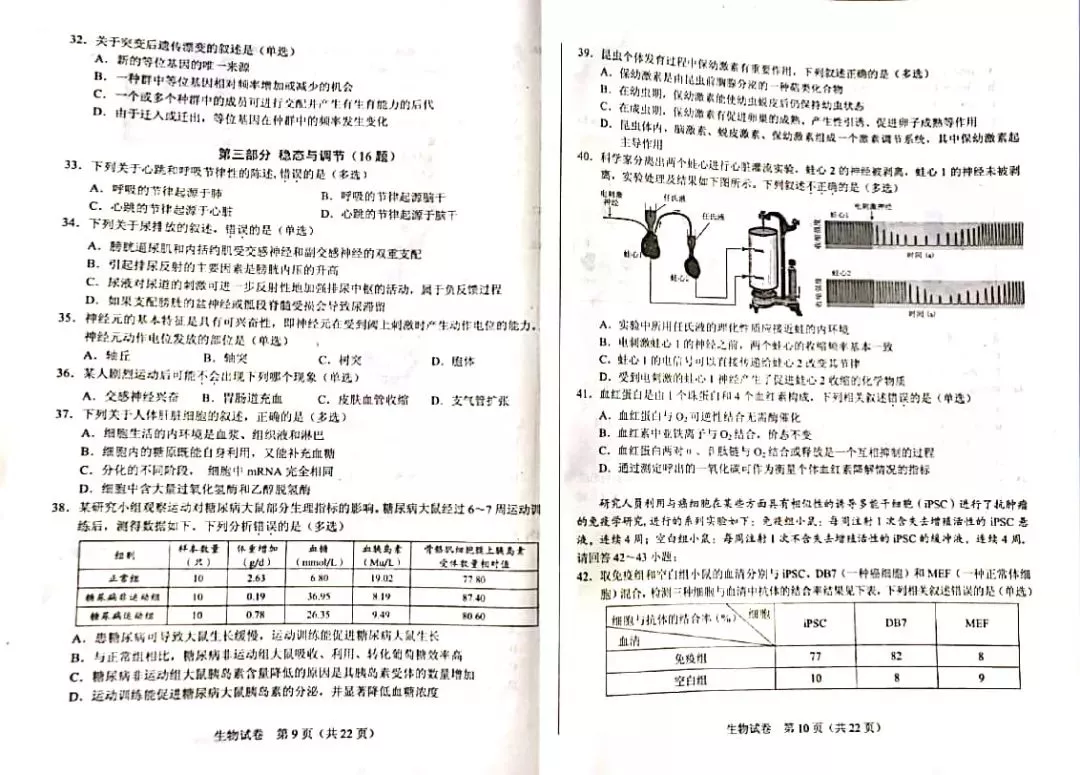 32. 关于突变后遗传漂变的叙述是（单选）
A. 新的等位基因的唯一来源
B. 一种群中等位基因相对频率增加或减少的机会
C. 一个或多个种群中的成员可进行交配并产生有生育能力的后代
D. 由于迁入或迁出，等位基因在种群中的频率发生变化
第三部分 稳态与调节（16 题）
33. 下列关于心跳和呼吸节律性的陈述，错误的是（多选）
A. 呼吸的节律起源于肺 B. 呼吸的节律起源脑干
C. 心跳的节律起源于心脏 D. 心跳的节律起源于脑干
34. 下列关于尿排放的叙述，错误的是（单选）
A. 膀胱逼尿肌和内括约肌受交感神经和副交感神经的双重支配
B. 引起排尿反射的主要因素是膀胱内压的升高
C. 尿液对尿道的刺激可进一步反射性地加强排尿中枢的活动，属于负反馈过程
D. 如果支配膀胱的盆神经或骶段脊髓受损会导致尿滞留
35. 神经元的基本特征是具有可兴奋性，即神经元在受到阈上刺激时产生动作电位的能力。
神经元动作电位发放的部位是（单选）
A. 轴丘 B. 轴突 C. 树突 D. 胞体
36. 某人剧烈运动后可能不会出现下列哪个现象（单选）
A. 交感神经兴奋 B. 胃肠道充血 C. 皮肤血管收缩 D. 支气管扩张
37. 下列关于人体肝脏细胞的叙述，正确的是（多选）
A. 细胞生活的内环境是血浆、组织液和淋巴
B. 细胞内的糖原既能自身利用，又能补充血糖
C. 分化的不同阶段， 细胞中 mRNA 完全相同
D. 细胞中含大量过氧化氢酶和乙醇脱氢酶
38. 某研究小组观察运动对糖尿病大鼠部分生理指标的影响。糖尿病大鼠经过 6～7 周运动训
练后，测得数据如下。下列分析错误的是（多选）
组别 样本数量（只） 体重增加（g/d） 血糖（mmol/L） 血胰岛素（Mu/L） 骨骼肌细胞膜上胰岛素受体数量相对值
正常组 10 2.63 6.80 19.02 77.80
糖尿病非运动组 10 0.19 36.95 8.19 87.40
糖尿病运动组 10 0.78 26.35 9.49 80.60
A. 患糖尿病可导致大鼠生长缓慢，运动训练能促进糖尿病大鼠生长
B. 与正常组相比，糖尿病非运动组大鼠吸收、利用、转化葡萄糖效率高
C. 糖尿病非运动组大鼠胰岛素含量降低的原因是其胰岛素受体的数量增加
D. 运动训练能促进糖尿病大鼠胰岛素的分泌，并显著降低血糖浓度
生物试卷 第 9 页（共 22 页）
39. 昆虫个体发育过程中保幼激素有重要作用，下列叙述正确的是（多选）
A. 保幼激素是由昆虫前胸腺分泌的一种萜类化合物
B. 在幼虫期，保幼激素能使幼虫蜕皮后仍保持幼虫状态
C. 在成虫期，保幼激素有促进卵巢的成熟、产生性引诱、促进卵子成熟等作用
D. 昆虫体内，脑激素、蜕皮激素、保幼激素组成一个激素调节系统，其中保幼激素起
主导作用
40. 科学家分离出两个蛙心进行心脏灌流实验，蛙心 2 的神经被剥离，蛙心 1 的神经未被剥
离，实验处理及结果如下图所示。下列叙述不正确的是（多选）
电刺激
神经
任氏液
任氏液
蛙心1
蛙心2
电刺激神经
蛙心1
收缩强度
时间 (a)
蛙心2
收缩强度
时间 (a)
A. 实验中所用任氏液的理化性质应接近蛙的内环境
B. 电刺激蛙心 1 的神经之前，两个蛙心的收缩频率基本一致
C. 蛙心 1 的电信号可以直接传递给蛙心 2 改变其节律
D. 受到电刺激的蛙心 1 神经产生了促进蛙心 2 收缩的化学物质
41. 血红蛋白是由 1 个珠蛋白和 4 个血红素构成，下列相关叙述错误的是（单选）
A. 血红蛋白与 O₂ 可逆性结合无需酶催化
B. 血红素中亚铁离子与 O₂ 结合，价态不变
C. 血红蛋白两对 α、β 肽链与 O₂ 结合或释放是一个互相抑制的过程
D. 通过测定呼出的一氧化碳可作为衡量个体血红素降解情况的指标
研究人员利用与癌细胞在某些方面具有相似性的诱导多能干细胞（iPSC）进行了抗肿瘤
的免疫学研究，进行的系列实验如下：免疫组小鼠：每周注射 1 次含失去增殖活性的 iPSC 悬
液，连续 4 周；空白组小鼠：每周注射 1 次不含失去增殖活性的 iPSC 的缓冲液，连续 4 周。
请回答 42～43 小题：
42. 取免疫组和空白组小鼠的血清分别与 iPSC、DB7（一种癌细胞）和 MEF（一种正常体细
胞）混合，检测三种细胞与血清中抗体的结合率结果见下表，下列相关叙述错误的是（单选）
细胞与抗体的结合率（%） 细胞 血清 iPSC DB7 MEF
免疫组 77 82 8
空白组 10 8 9
生物试卷 第 10 页（共 22 页）